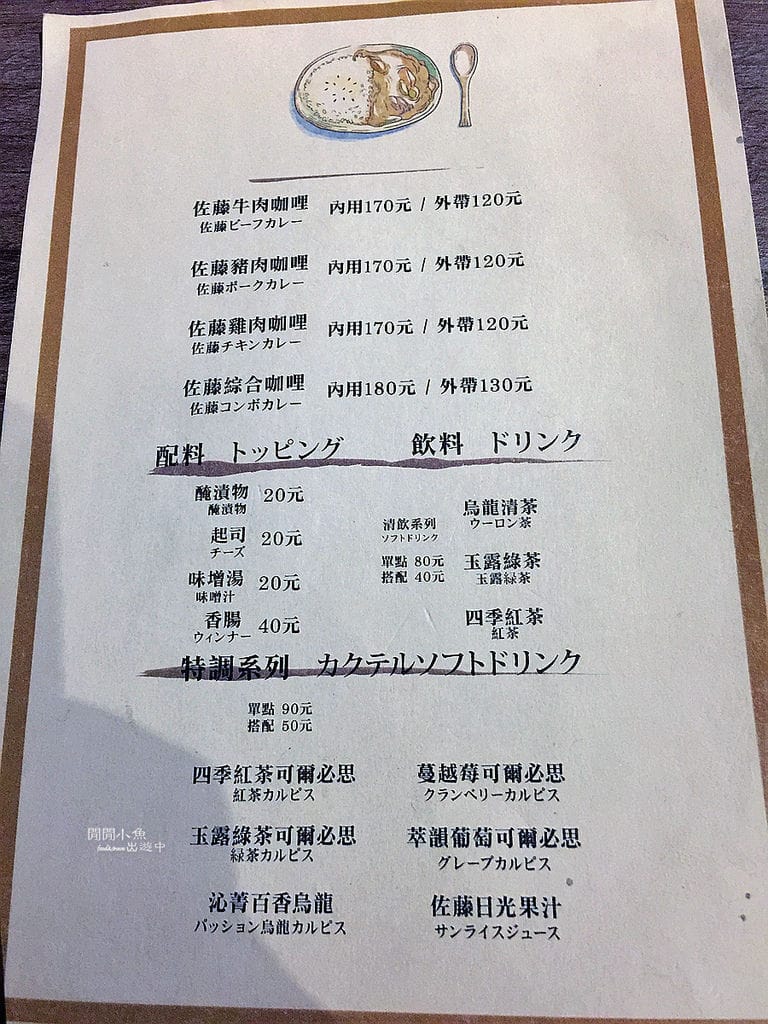 佐藤牛肉咖哩 內用170元 / 外帶120元
佐藤ビーフカレー
佐藤豬肉咖哩 內用170元 / 外帶120元
佐藤ポークカレー
佐藤雞肉咖哩 內用170元 / 外帶120元
佐藤チキンカレー
佐藤綜合咖哩 內用180元 / 外帶130元
佐藤コンボカレー
配料 トッピング
醃漬物 20元
醃漬物
起司 20元
チーズ
味增湯 20元
味噌汁
香腸 40元
ウィンナー
飲料 ドリンク
清飲系列
ソフトドリンク
單點 80元
搭配 40元
烏龍清茶
ウーロン茶
玉露綠茶
玉露緑茶
四季紅茶
紅茶
特調系列 カクテルソフトドリンク
單點 90元
搭配 50元
四季紅茶可爾必思
紅茶カルピス
蔓越莓可爾必思
クランベリーカルピス
玉露綠茶可爾必思
緑茶カルピス
萃韻葡萄可爾必思
グレープカルピス
沁菁百香烏龍
パッション烏龍カルピス
佐藤日光果汁
サンライスジュース
閒閒小魚
出遊中